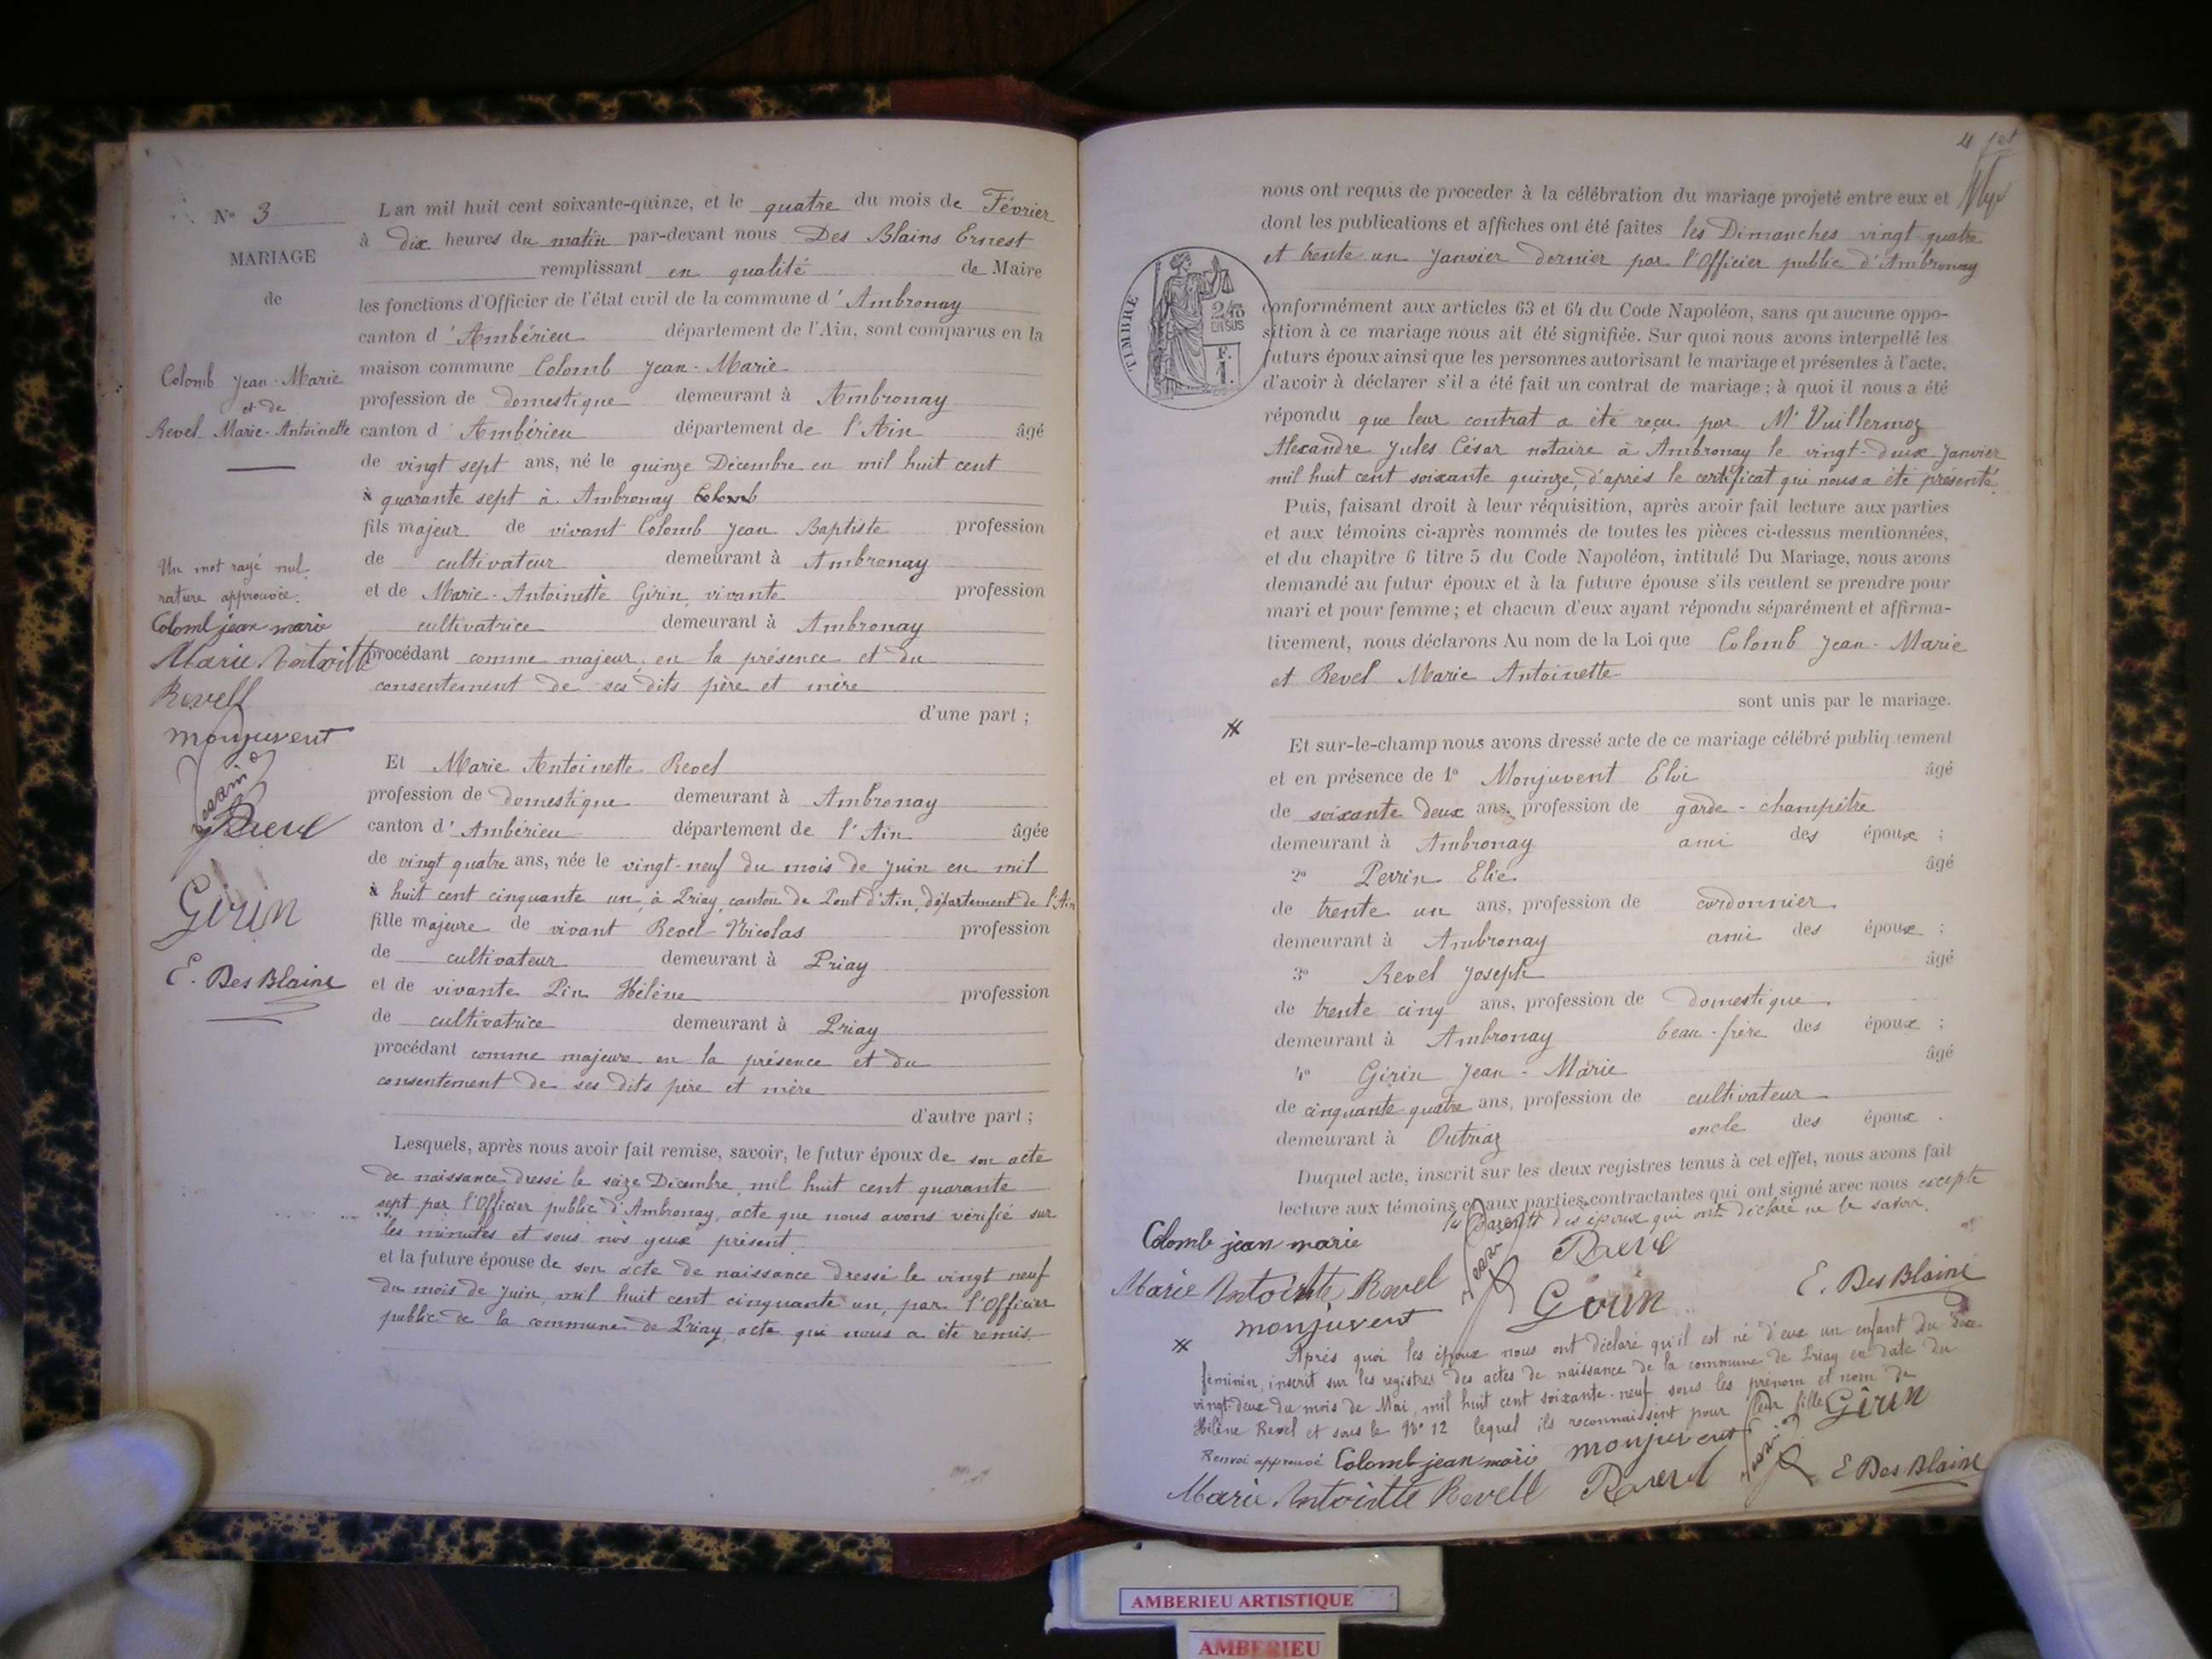 N° 3
MARIAGE
de
Colomb Jean-Marie
et de
Revel Marie-Antoinette
Un mot rayé nul.
rature approuvée.
Colomb jean marie
Marie Antoinette
Revell
monjuvent
Girin
E. Des Blains
L'an mil huit cent soixante-quinze, et le quatre du mois de Février
à dix heures du matin par-devant nous Des Blains Ernest
remplissant en qualité de Maire
les fonctions d'Officier de l'état civil de la commune d'Ambronay
canton d'Ambérieu département de l'Ain, sont comparus en la
maison commune Colomb Jean-Marie
profession de domestique demeurant à Ambronay
canton d'Ambérieu département de l'Ain âgé
de vingt sept ans, né le quinze Décembre en mil huit cent
à quarante sept à Ambronay Colomb
fils majeur de vivant Colomb Jean Baptiste profession
de cultivateur demeurant à Ambronay
et de Marie-Antoinette Girin, vivante profession
cultivatrice demeurant à Ambronay
procédant comme majeur, en la présence et du
consentement de ses dits père et mère
d'une part ;
Et Marie Antoinette Revel
profession de domestique demeurant à Ambronay
canton d'Ambérieu département de l'Ain âgée
de vingt quatre ans, née le vingt-neuf du mois de Juin en mil
à huit cent cinquante un, à Priay, canton de Pont d'Ain, département de l'Ain
fille majeure de vivant Revel Nicolas profession
de cultivateur demeurant à Priay
et de vivante Pin Hélène profession
de cultivatrice demeurant à Priay
procédant comme majeure en la présence et du
consentement de ses dits père et mère
d'autre part ;
Lesquels, après nous avoir fait remise, savoir, le futur époux de son acte
de naissance dressé le seize Décembre, mil huit cent quarante
sept par l'Officier public d'Ambronay, acte que nous avons vérifié sur
les minutes et sous nos yeux présent.
et la future épouse de son acte de naissance dressé le vingt neuf
du mois de Juin, mil huit cent cinquante un, par l'Officier
public de la commune de Priay, acte qui nous a été remis
4
nous ont requis de proceder à la célébration du mariage projeté entre eux et
dont les publications et affiches ont été faites les Dimanches vingt quatre
et trente un Janvier dernier par l'Officier public d'Ambronay
TIMBRE
2/10
EN SUS
F.
1.
conformément aux articles 63 et 64 du Code Napoléon, sans qu'aucune oppo-
sition à ce mariage nous ait été signifiée. Sur quoi nous avons interpellé les
futurs époux ainsi que les personnes autorisant le mariage et présentes à l'acte,
d'avoir à déclarer s'il a été fait un contrat de mariage ; à quoi il nous a été
répondu que leur contrat a été reçu par Mr Vuillermoz
Alexandre Jules César notaire à Ambronay le vingt-deux Janvier
mil huit cent soixante quinze, d'après le certificat qui nous a été présenté.
Puis, faisant droit à leur réquisition, après avoir fait lecture aux parties
et aux témoins ci-après nommés de toutes les pièces ci-dessus mentionnées,
et du chapitre 6 titre 5 du Code Napoléon, intitulé Du Mariage, nous avons
demandé au futur époux et à la future épouse s'ils veulent se prendre pour
mari et pour femme ; et chacun d'eux ayant répondu séparément et affirma-
tivement, nous déclarons Au nom de la Loi que Colomb Jean-Marie
et Revel Marie Antoinette
sont unis par le mariage.
Et sur-le-champ nous avons dressé acte de ce mariage célébré publiquement
et en présence de 1° Monjuvent Eloi âgé
de soixante deux ans, profession de garde-champêtre
demeurant à Ambronay ami des époux ;
2° Perrin Elie âgé
de trente un ans, profession de cordonnier
demeurant à Ambronay ami des époux ;
3° Revel Joseph âgé
de trente cinq ans, profession de domestique
demeurant à Ambronay beau-frère des époux ;
4° Girin Jean-Marie âgé
de cinquante quatre ans, profession de cultivateur
demeurant à Outriaz oncle des époux .
Duquel acte, inscrit sur les deux registres tenus à cet effet, nous avons fait
lecture aux témoins et aux parties contractantes qui ont signé avec nous excepté
les parents des époux qui ont déclaré ne le savoir.
Colomb jean marie
Marie Antoinette Revel
monjuvent
Girin
E. Des Blains
Après quoi les époux nous ont déclaré qu'il est né d'eux un enfant du sexe
féminin, inscrit sur les registres des actes de naissance de la commune de Priay en date du
vingt-deux du mois de Mai, mil huit cent soixante-neuf sous les prénom et nom de
Hélène Revel et sous le N° 12 lequel ils reconnaissent pour leur fille Girin
Renvoi approuvé Colomb jean mari monjuvent
Marie Antointte Revell E Des Blains
AMBERIEU ARTISTIQUE
AMBERIEU